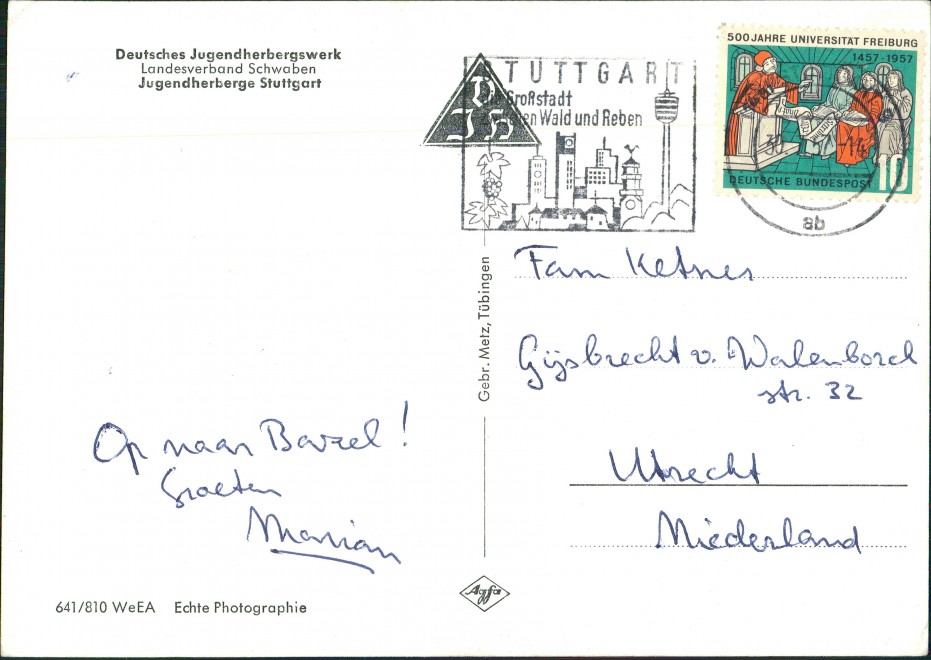 Deutsches Jugendherbergswerk
Landesverband Schwaben
Jugendherberge Stuttgart
STUTTGART
Großstadt
Wald und Reben
500 JAHRE UNIVERSITÄT FREIBURG
1457-1957
DEUTSCHE BUNDESPOST
10
ab
Gebr. Metz, Tübingen
Fam Ketner
Gijsbrecht v. Walenborch
str. 32
Utrecht
Niederland
Op naar Bazel!
Groeten
Marian
641/810 WeEA Echte Photographie
Agfa